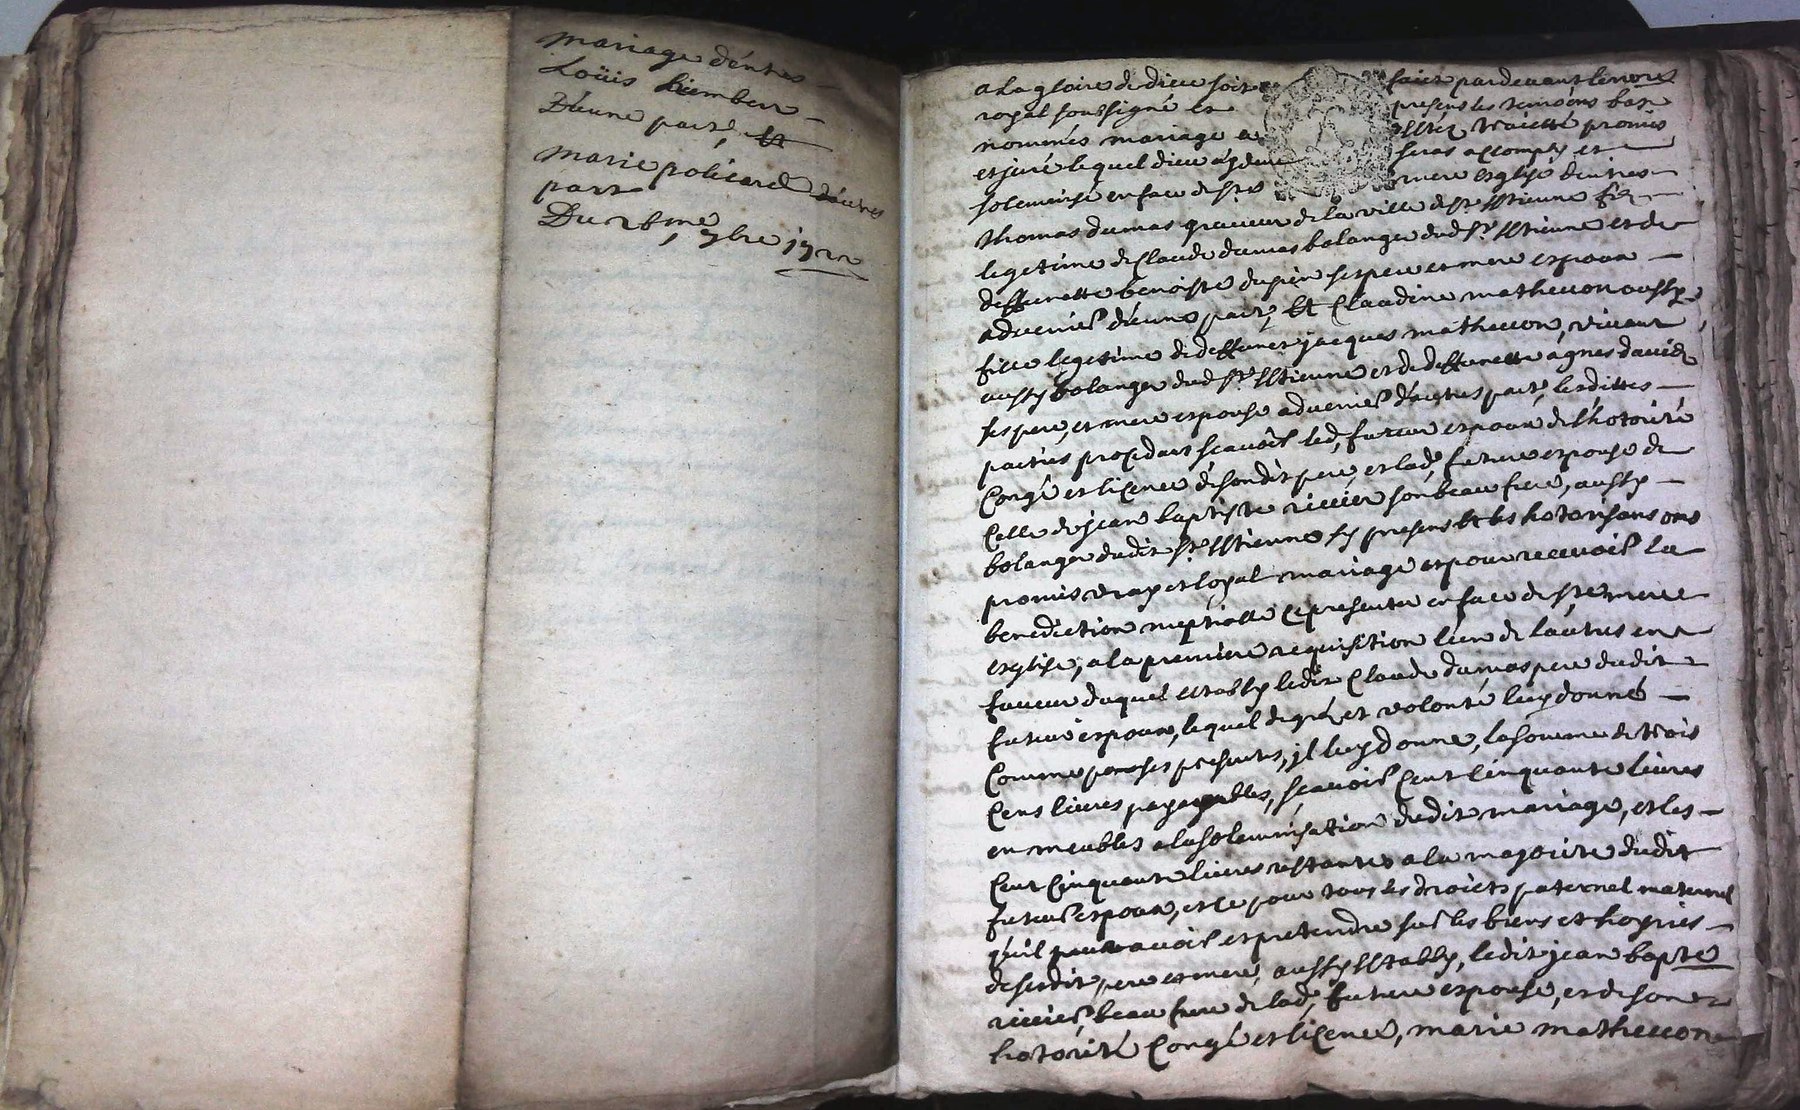 mariage d'entre
Loüis
D'eune part, et
marie policard d'autres
part
Du 26me 7bre 1722
a la gloire de dieu soit faict pardevant le nore
royal soussigné et presens les temoins bas
nommés mariage a esté traicté promis
et juré lequel dieu aydant seras accomply et
solemnisé en face de ste mere esglise d'entres
thomas dumas graveur de la ville de st estienne fils
legetime de claude dumas bolanger dud st estienne et de
deffunette benoiste dupin ses pere et mere espoux
advenir d'eune part, et Claudine mathevon aussy
fille legetime de deffunct jacques mathevon, vivant
aussy bolanger dud st estienne et de deffunette agnes david
ses pere, et mere espouse advenir d'autres part, lesdittes
parties procedant scavoir led, futeur espoux de l'hotorité
Congé et licence de son dit pere, et lad, futeure espouse de
Celle de jean baptiste rivier son beau frere, aussy
bolanger dudit st estienne sy presens et les hotorisans ons
promis vray et loyal mariage et pour recevoir la
benediction nuptialle ce presenter en face de ste mere
esglise, a la premiere requisition l'un de l'autres en
faveur duquel estably ledit Claude dumas pere dudit
futeur espoux, lequel de gré, et volonté luy donné
Comme par ses presentes, jl luy donne, la somme de trois
Cens livres payables, scavoir Cent Cinquante livres
en meubles a la solemnisation dudit mariage, et les
Cent Cinquante livres restantes a la majorité dudit
futeur espoux, et ce pour tous les droicts paternel maternel
qu'il peut avoir et pretendre sur les biens et hoyries
de sesdit, pere et mere, aussy estably, ledit jean bapte
rivier, beau frere de lad, futeure espouse, et de son
hotorité Congé et licence, marie mathevon